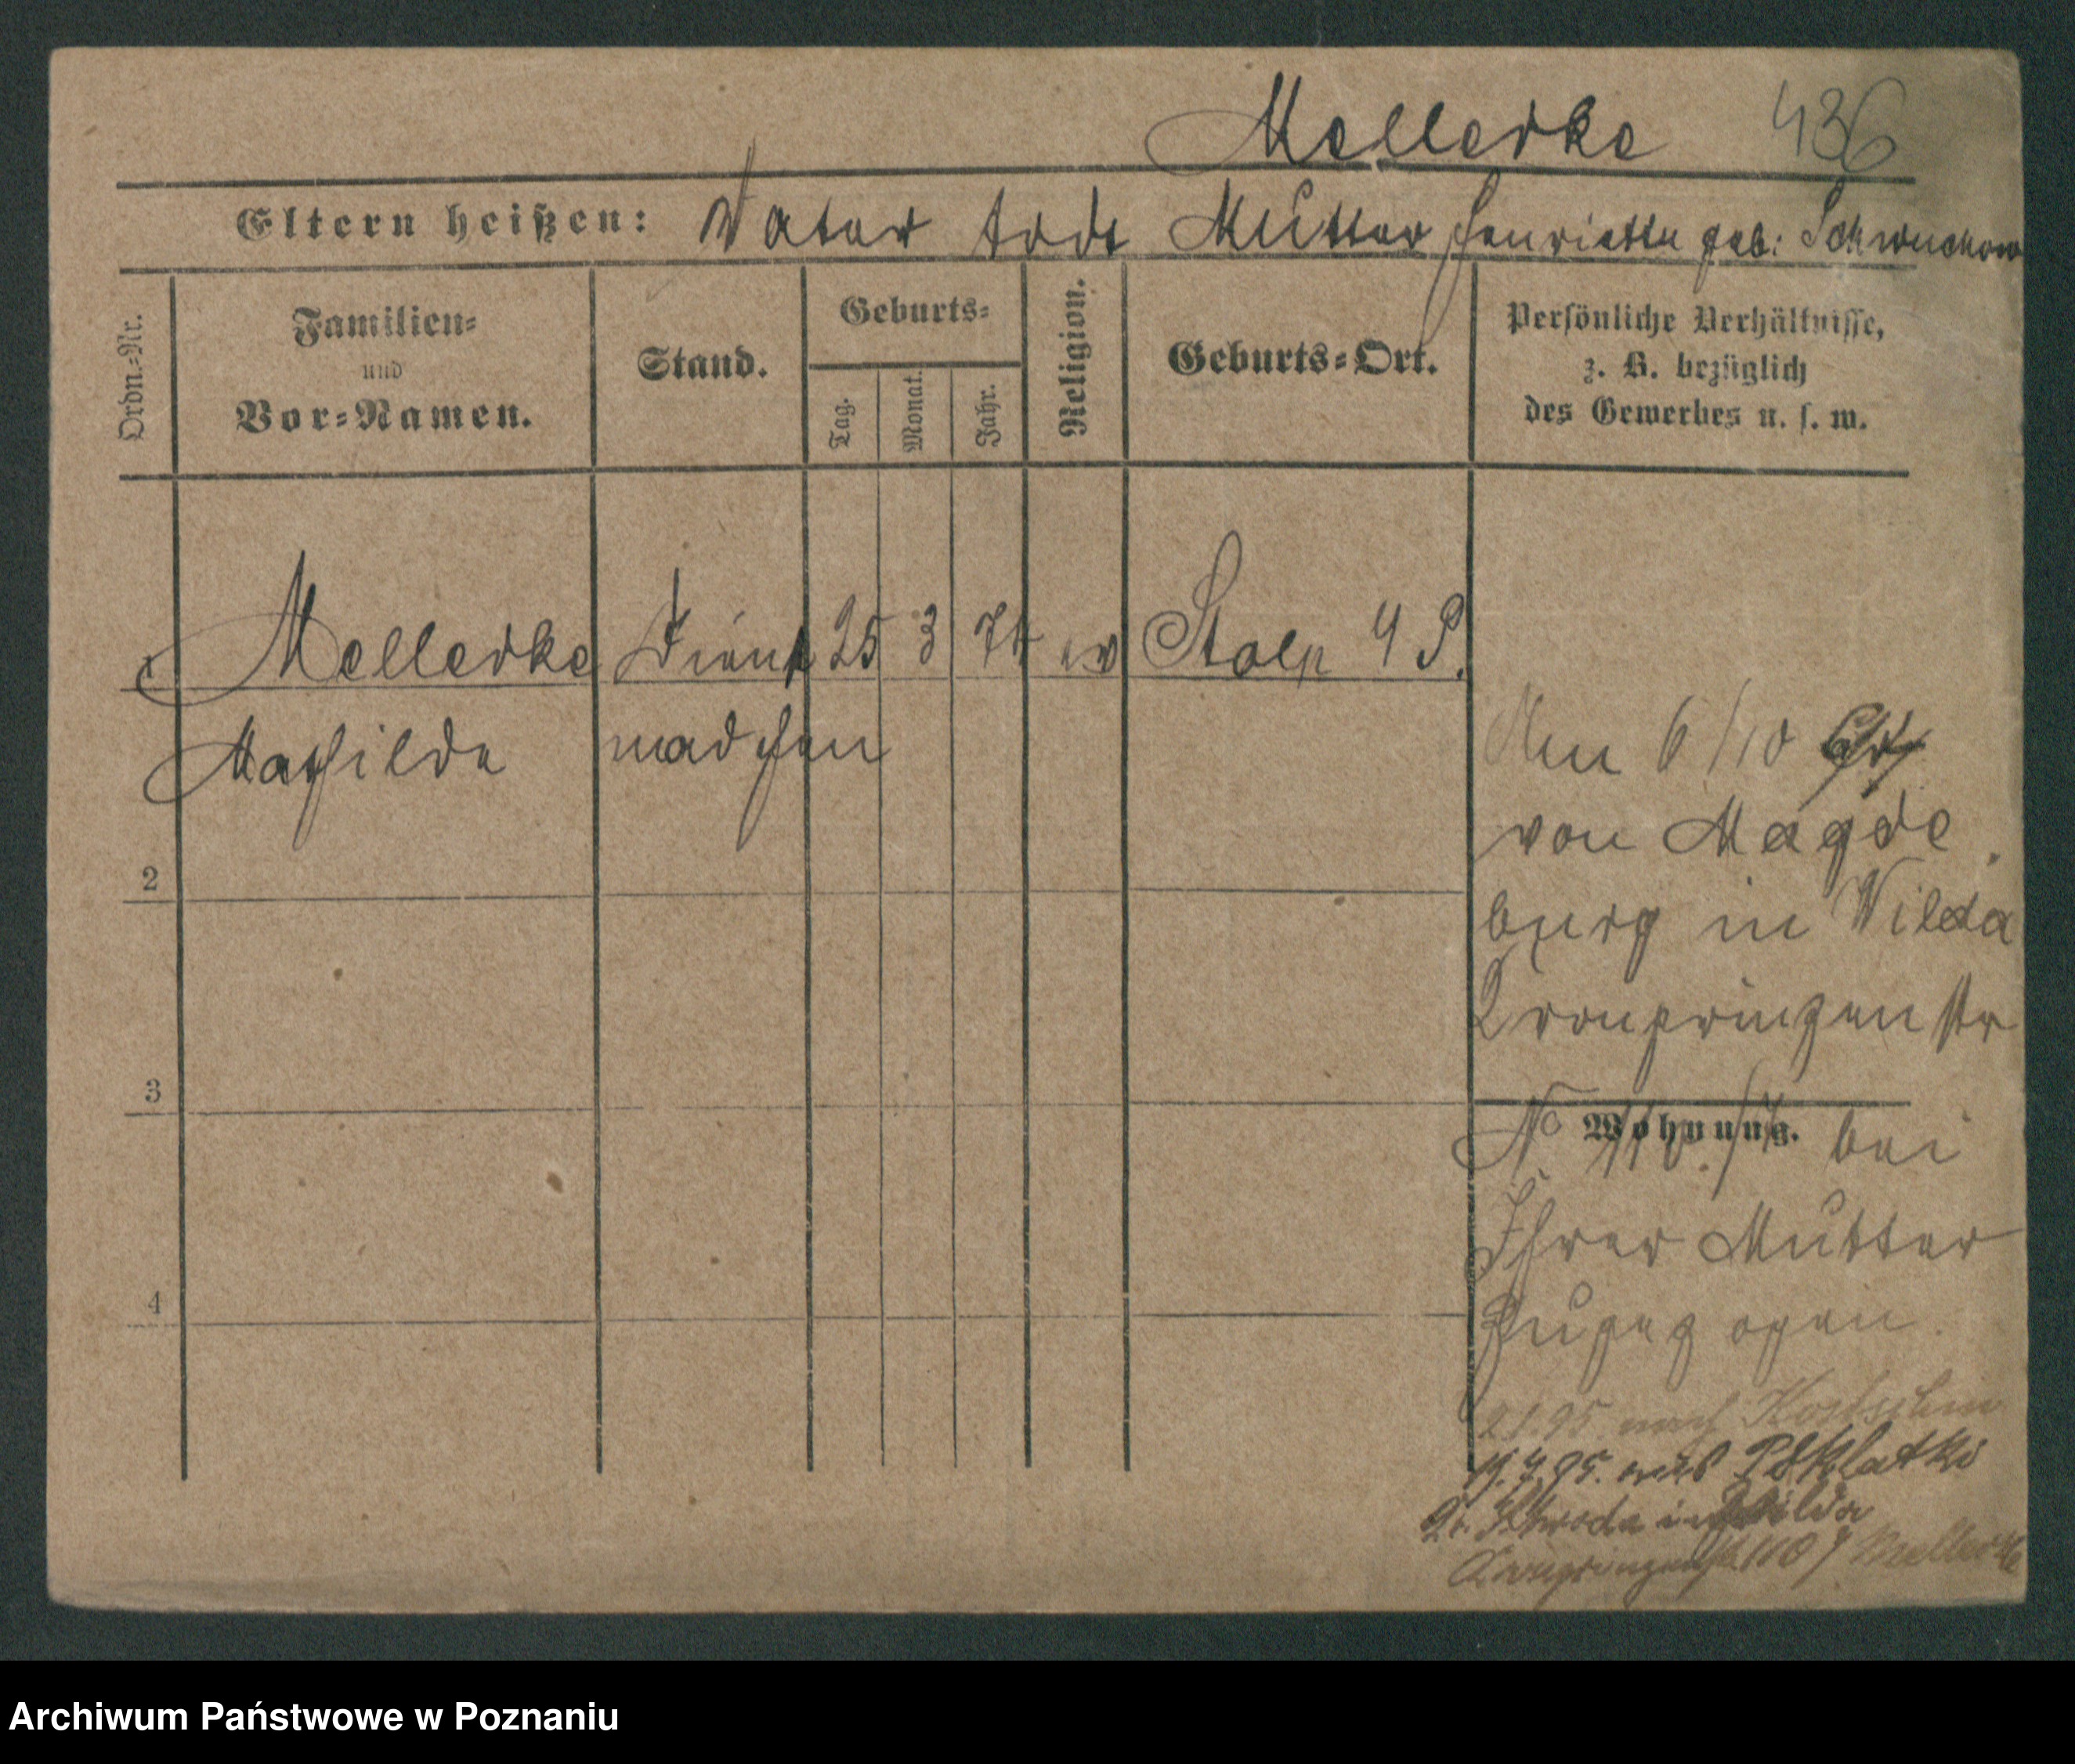 Mellerke 436
Eltern heißen: Vater todt Mutter Henriette geb: Schwuchow
Ordn.-Nr.
Familien-
und
Vor-Namen.
Stand.
Geburts-
Tag.
Monat.
Jahr.
Religion.
Geburts-Ort.
Persönliche Verhältnisse,
z. B. bezüglich
des Gewerbes u. s. w.
1 Mellerke Dienst 25 3 74 ev Stolp i/P.
Mathilde madchen
2
3
4
6/10
von Magde
burg in Wilda
Kronprinzenstr
Wohnung.
No 110. bei
Ihrer Mutter
Zugezogen
2.1.95. nach
95. aus
Schroda in Wilda
Kronprinzenstr. 110 Mellerke
Archiwum Państwowe w Poznaniu